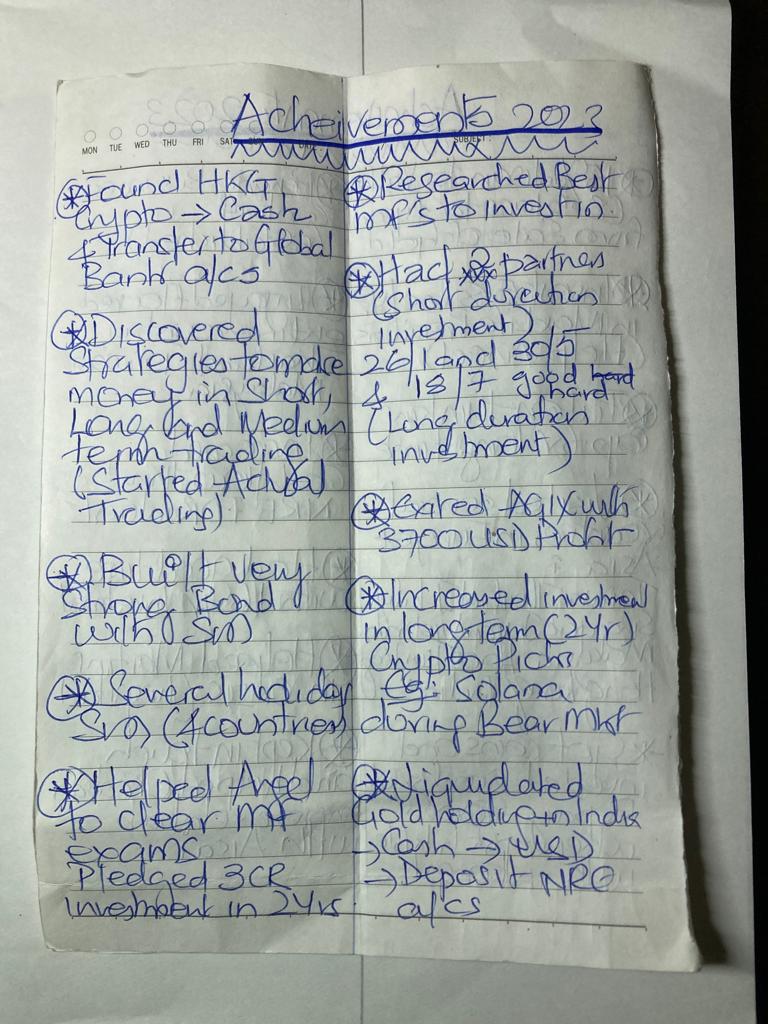 Acheivements 2023
MON TUE WED THU FRI SAT SUBJECT:
Found HKG
Crypto → Cash
& Transfer to Global
Bank a/cs
Discovered
Strategies to make
money in Short,
Long and Medium
term trading
(Started Actual
Trading)
Built very
Strong Bond
with
Several holiday
(4 countries)
Helped Angel
to clear MF
exams
Pledged 3CR
investment in 2Yrs.
Researched Best
MF's to invest in.
Had 2 partners
(Short duration
investment)
26/1 and 30/5
& 18/7 good hard
hard
(Long duration
investment)
Exited AGIX with
3700 USD Profit
Increased investment
in long term (2Yr)
Crypto Picks
Eg: Solana
during Bear Mkt
Liquidated
Gold holding in India
→ Cash → USD
→ Deposit NRO
a/cs